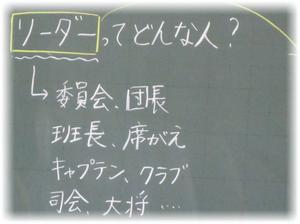 リーダーってどんな人?
↳委員会、団長
班長、席がえ
キャプテン、クラブ
司会、大将…